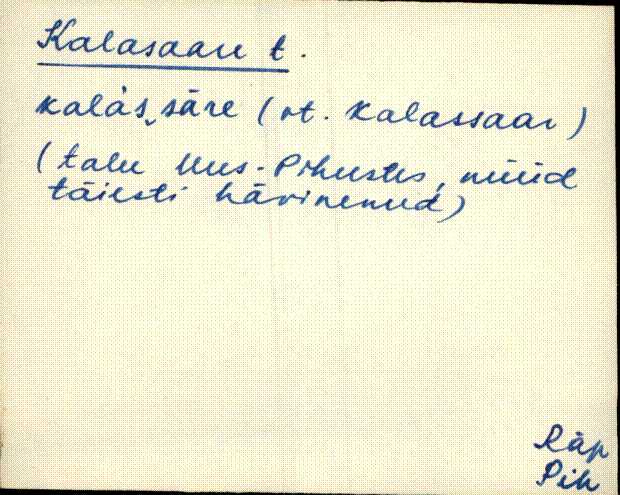 Kalasaare t.
kalàs͜säre (vt. Kalassaar)
(talu Uus-Pihustes, nüüd
täiesti hävinenud)
Räp
Pih